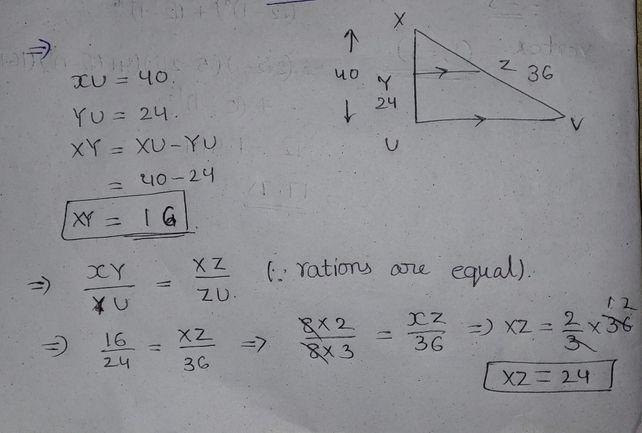 ⇒
XU = 40.
YU = 24.
XY = XU - YU
= 40 - 24
XY = 16
X
40
Y
24
Z
36
U
V
⇒ XY/YU = XZ/ZU. (∵ rations are equal).
⇒ 16/24 = XZ/36 ⇒ 8×2/8×3 = XZ/36 ⇒ XZ = 2/3 × 36 12
XZ = 24